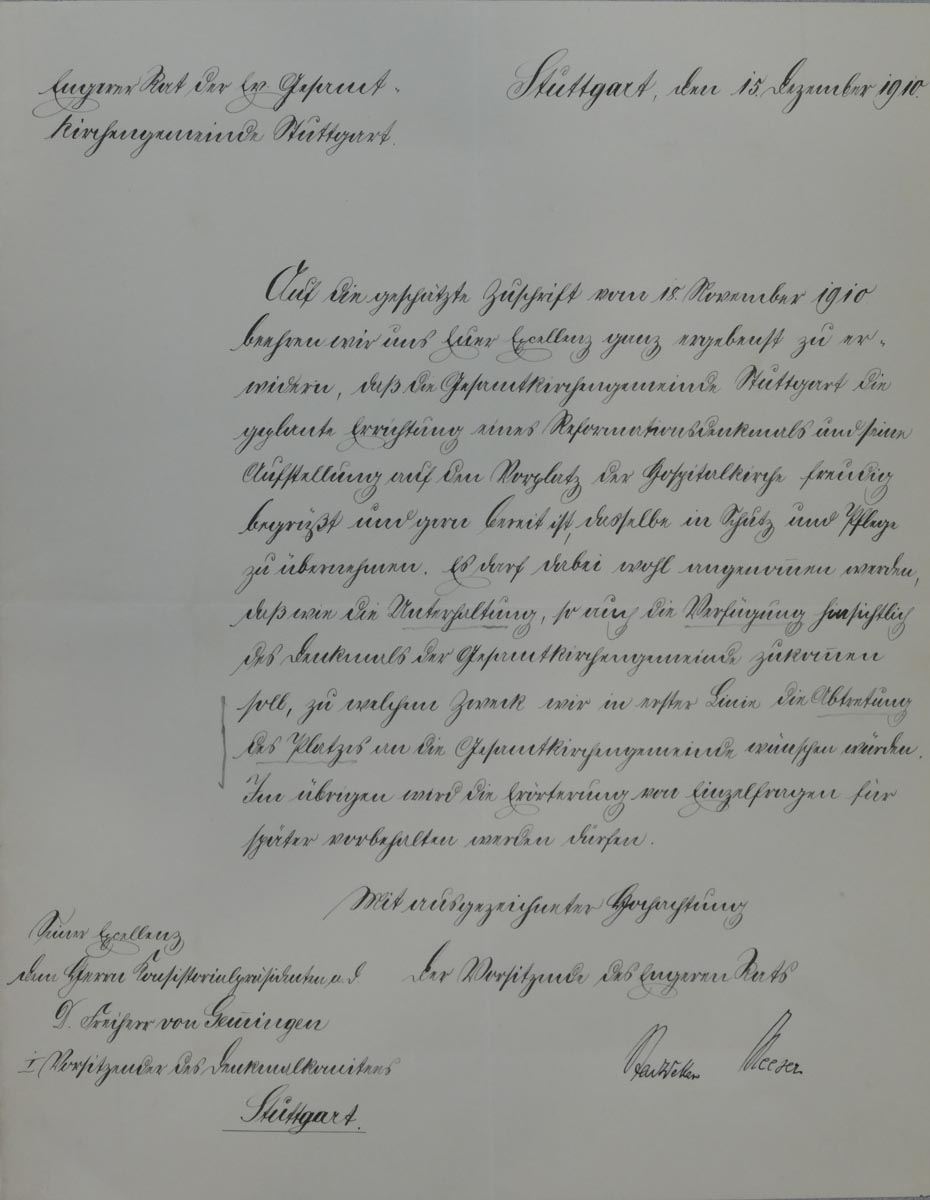 Engerer Rat der Ev. Gesamt-
kirchengemeinde Stuttgart.
Stuttgart, den 15. Dezember 1910.
Auf die geschätzte Zuschrift vom 18. November 1910
beehren wir uns Euer Excellenz ganz ergebenst zu er-
widern, daß die Gesamtkirchengemeinde Stuttgart die
geplante Errichtung eines Reformationsdenkmals und seine
Aufstellung auf den Vorplatz der Hospitalkirche freudig
begrüßt und gern bereit ist, dasselbe in Schutz und Pflege
zu übernehmen. Es darf dabei wohl angenom̅en werden,
daß wie die Unterhaltung, so auch die Verfügung hinsichtlich
des Denkmals der Gesamtkirchengemeinde zukom̅en
soll, zu welchem Zweck wir in erster Linie die Abtretung
des Platzes an die Gesamtkirchengemeinde wünschen würden.
Im übrigen wird die Erörterung von Einzelfragen für
später vorbehalten werden dürfen.
Mit ausgezeichneter Hochachtung
Der Vorsitzende des Engeren Rats
Seiner Excellenz
dem Herrn Konsistorialpräsidenten a. d.
D. Freiherr von Gem̅ingen
I Vorsitzender des Denkmalkomitees
Stuttgart.